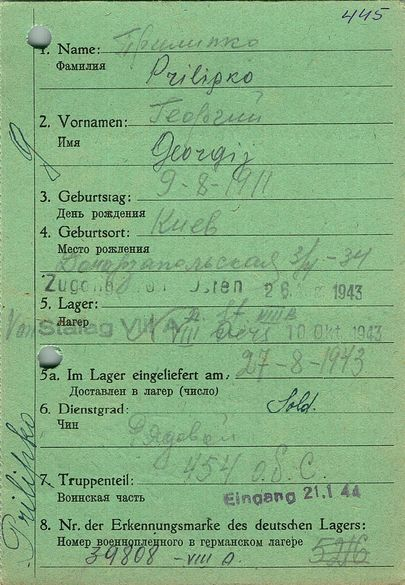 445
1. Name: Прилипко
Фамилия Prilipko
2. Vornamen: Георгий
Имя Georgij
3. Geburtstag: 9-8-1911
День рождения
4. Geburtsort: Киев
Место рождения
3/4-34
Osten 1943
5. Lager:
Лагер
Stalag VIII A 10 Okt 1943
5a. Im Lager eingeliefert am: 27-8-1943
Доставлен в лагер (число)
6. Dienstgrad: Sold.
Чин Рядовой
7. Truppenteil: 454 o.S.C.
Воинская часть Eingang 21.1.44
8. Nr. der Erkennungsmarke des deutschen Lagers:
Номер военнопленного в германском лагере
39808 - VIII A. 5216
Prilipko